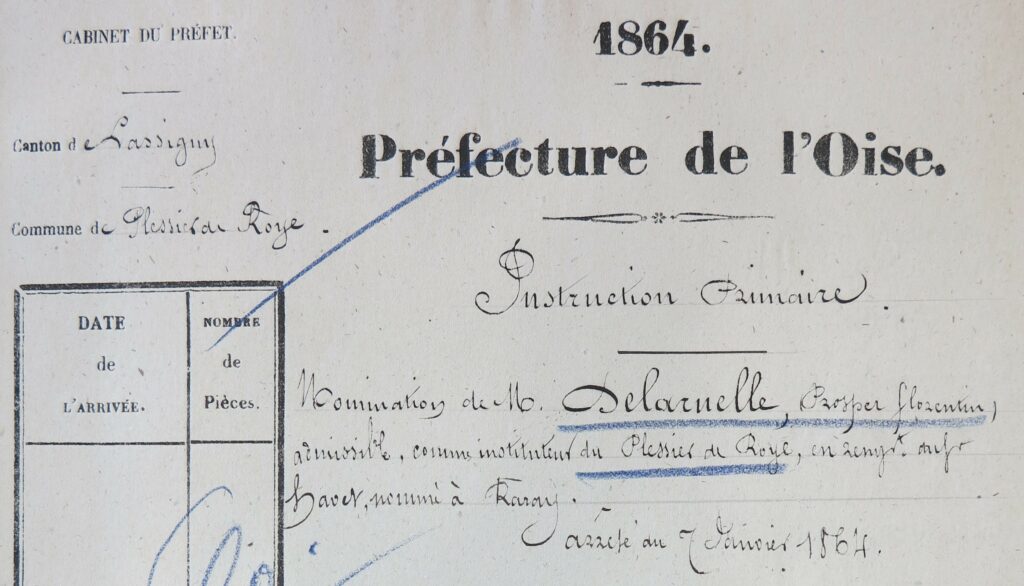 CABINET DU PRÉFET.
1864.
Préfecture de l'Oise.
Canton de Lassigny
Commune de Plessier de Roye.
Instruction Primaire.
DATE
de
L'ARRIVÉE.
NOMBRE
de
Pièces.
Nomination de M. Delaruelle, Prosper florentin,
admissible, comme instituteur du Plessier de Roye, en rempt. du
Havet, nommé à
arrêté du 7 Janvier 1864.